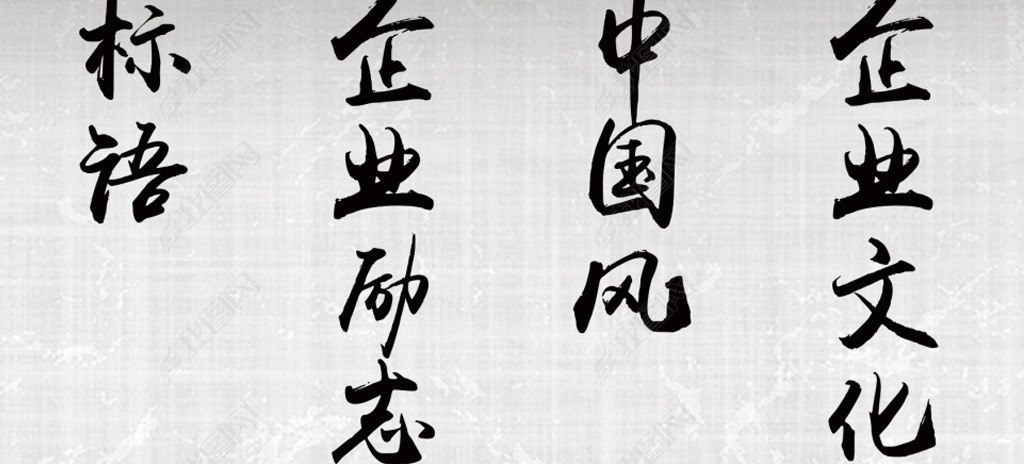 企业文化
中国风
企业励志
标语